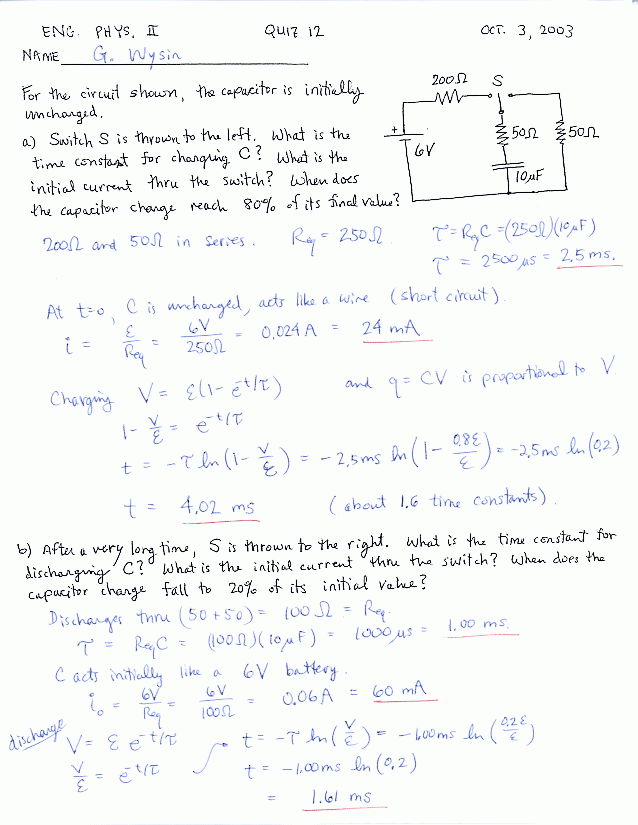 ENG. PHYS. II QUIZ 12 OCT. 3, 2003
NAME G. Wysin
For the circuit shown, the capacitor is initially
uncharged.
a) Switch S is thrown to the left. What is the
time constant for charging C? What is the
initial current thru the switch? When does
the capacitor charge reach 80% of its final value?
200Ω S
+
6V
50Ω
50Ω
10μF
200Ω and 50Ω in series. Req = 250Ω. τ = RqC = (250Ω)(10μF)
τ = 2500μs = 2.5 ms.
At t=0, C is uncharged, acts like a wire (short circuit).
i = ε/Req = 6V/250Ω = 0.024 A = 24 mA
Charging V = ε(1-e^-t/τ) and q = CV is proportional to V.
1 - V/ε = e^-t/τ
t = -τ ln(1- V/ε) = -2.5ms ln(1- 0.8ε/ε) = -2.5ms ln(0.2)
t = 4.02 ms (about 1.6 time constants).
b) After a very long time, S is thrown to the right. What is the time constant for
discharging C? What is the initial current thru the switch? When does the
capacitor charge fall to 20% of its initial value?
Discharges thru (50+50) = 100Ω = Req.
τ = ReqC = (100Ω)(10μF) = 1000μs = 1.00 ms.
C acts initially like a 6V battery.
i₀ = 6V/Req = 6V/100Ω = 0.06A = 60 mA
discharge V = ε e^-t/τ t = -τ ln(V/ε) = -1.00ms ln(0.2ε/ε)
V/ε = e^-t/τ t = -1.00ms ln(0.2)
= 1.61 ms